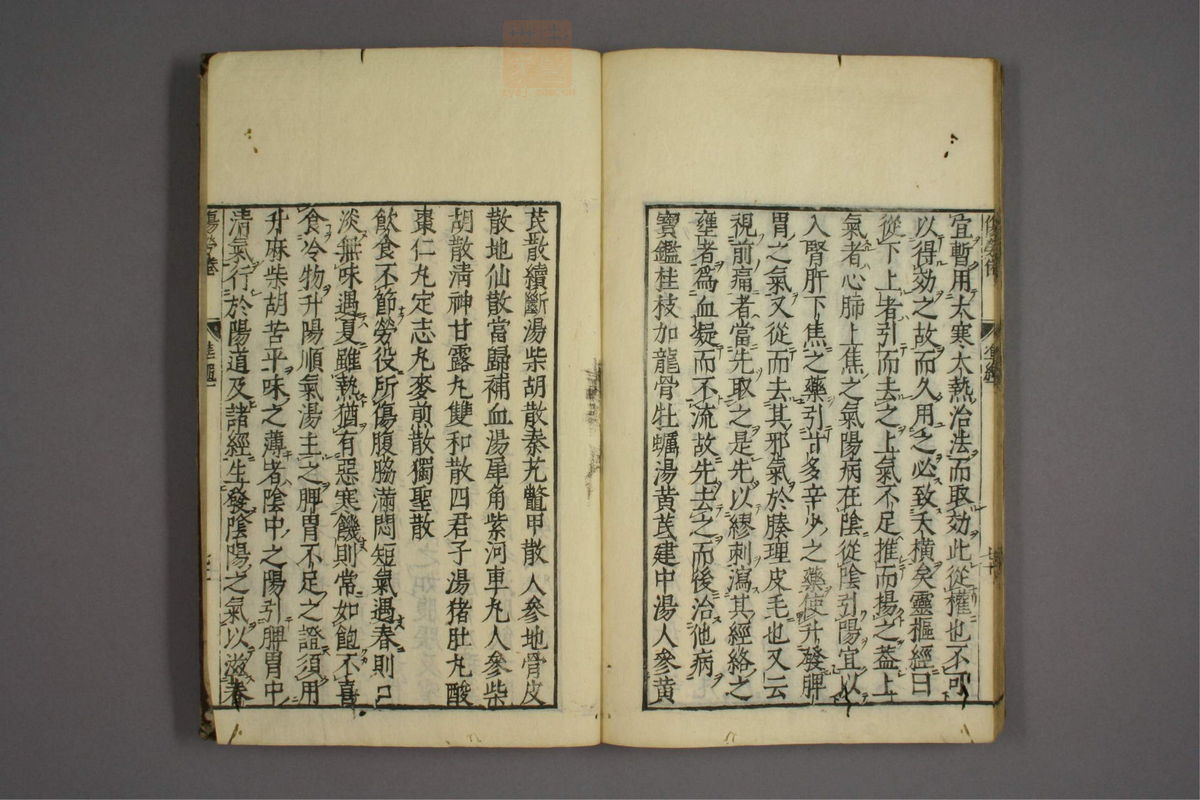 宜暫用大寒大熱治法而取効此從權也不可
以得効之故而久用之必致夭橫矣靈樞經曰
從下上者引而去之上氣不足推而揚之蓋上
氣者心肺上焦之氣陽病在陰從陰引陽宜以
入腎肝下焦之藥引甘多辛少之藥使升發脾
胃之氣又從而去其邪氣於腠理皮毛也又云
視前痛者當先取之是先以繆刺瀉其經絡之
壅者為血凝而不流故先去之而後治他病
寶鑑桂枝加龍骨牡蠣湯黃芪建中湯人參黃
芪散續斷湯柴胡散秦艽鼈甲散人參地骨皮
散地仙散當歸補血湯犀角紫河車丸人參柴
胡散淸神甘露丸雙和散四君子湯猪肚丸酸
棗仁丸定志丸麥煎散獨聖散
飮食不節勞役所傷腹脇滿悶短氣遇春則口
淡無味遇夏雖熱猶有惡寒饑則常如飽不喜
食冷物升陽順氣湯主之脾胃不足之證須用
升麻柴胡苦平味之薄者陰中之陽引脾胃中
清氣行於陽道及諸經生發陰陽之氣以滋春